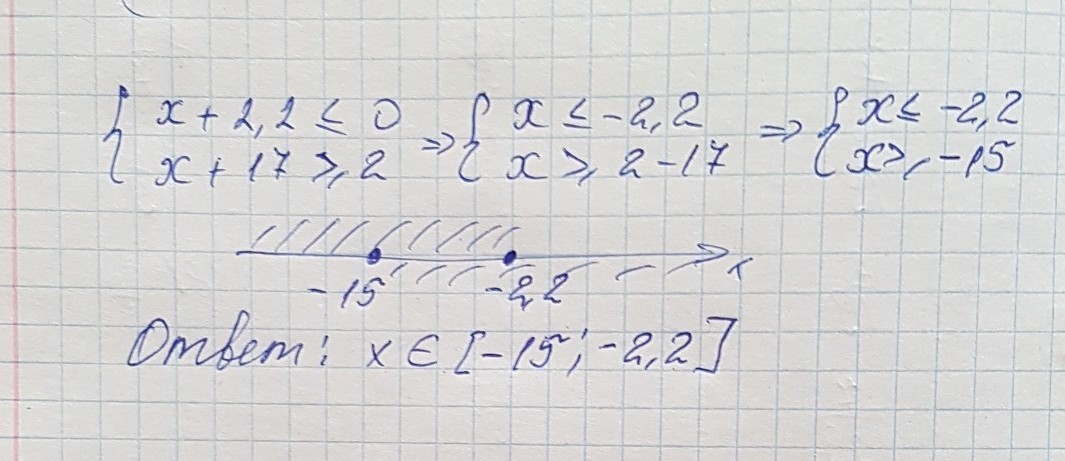 { x + 2,2 ≤ 0 ⇒ { x ≤ -2,2 ⇒ { x ≤ -2,2
x + 17 ≥ 2 x ≥ 2 - 17 x ≥ -15
-15 -2,2 x
Ответ: x ∈ [-15; -2,2]